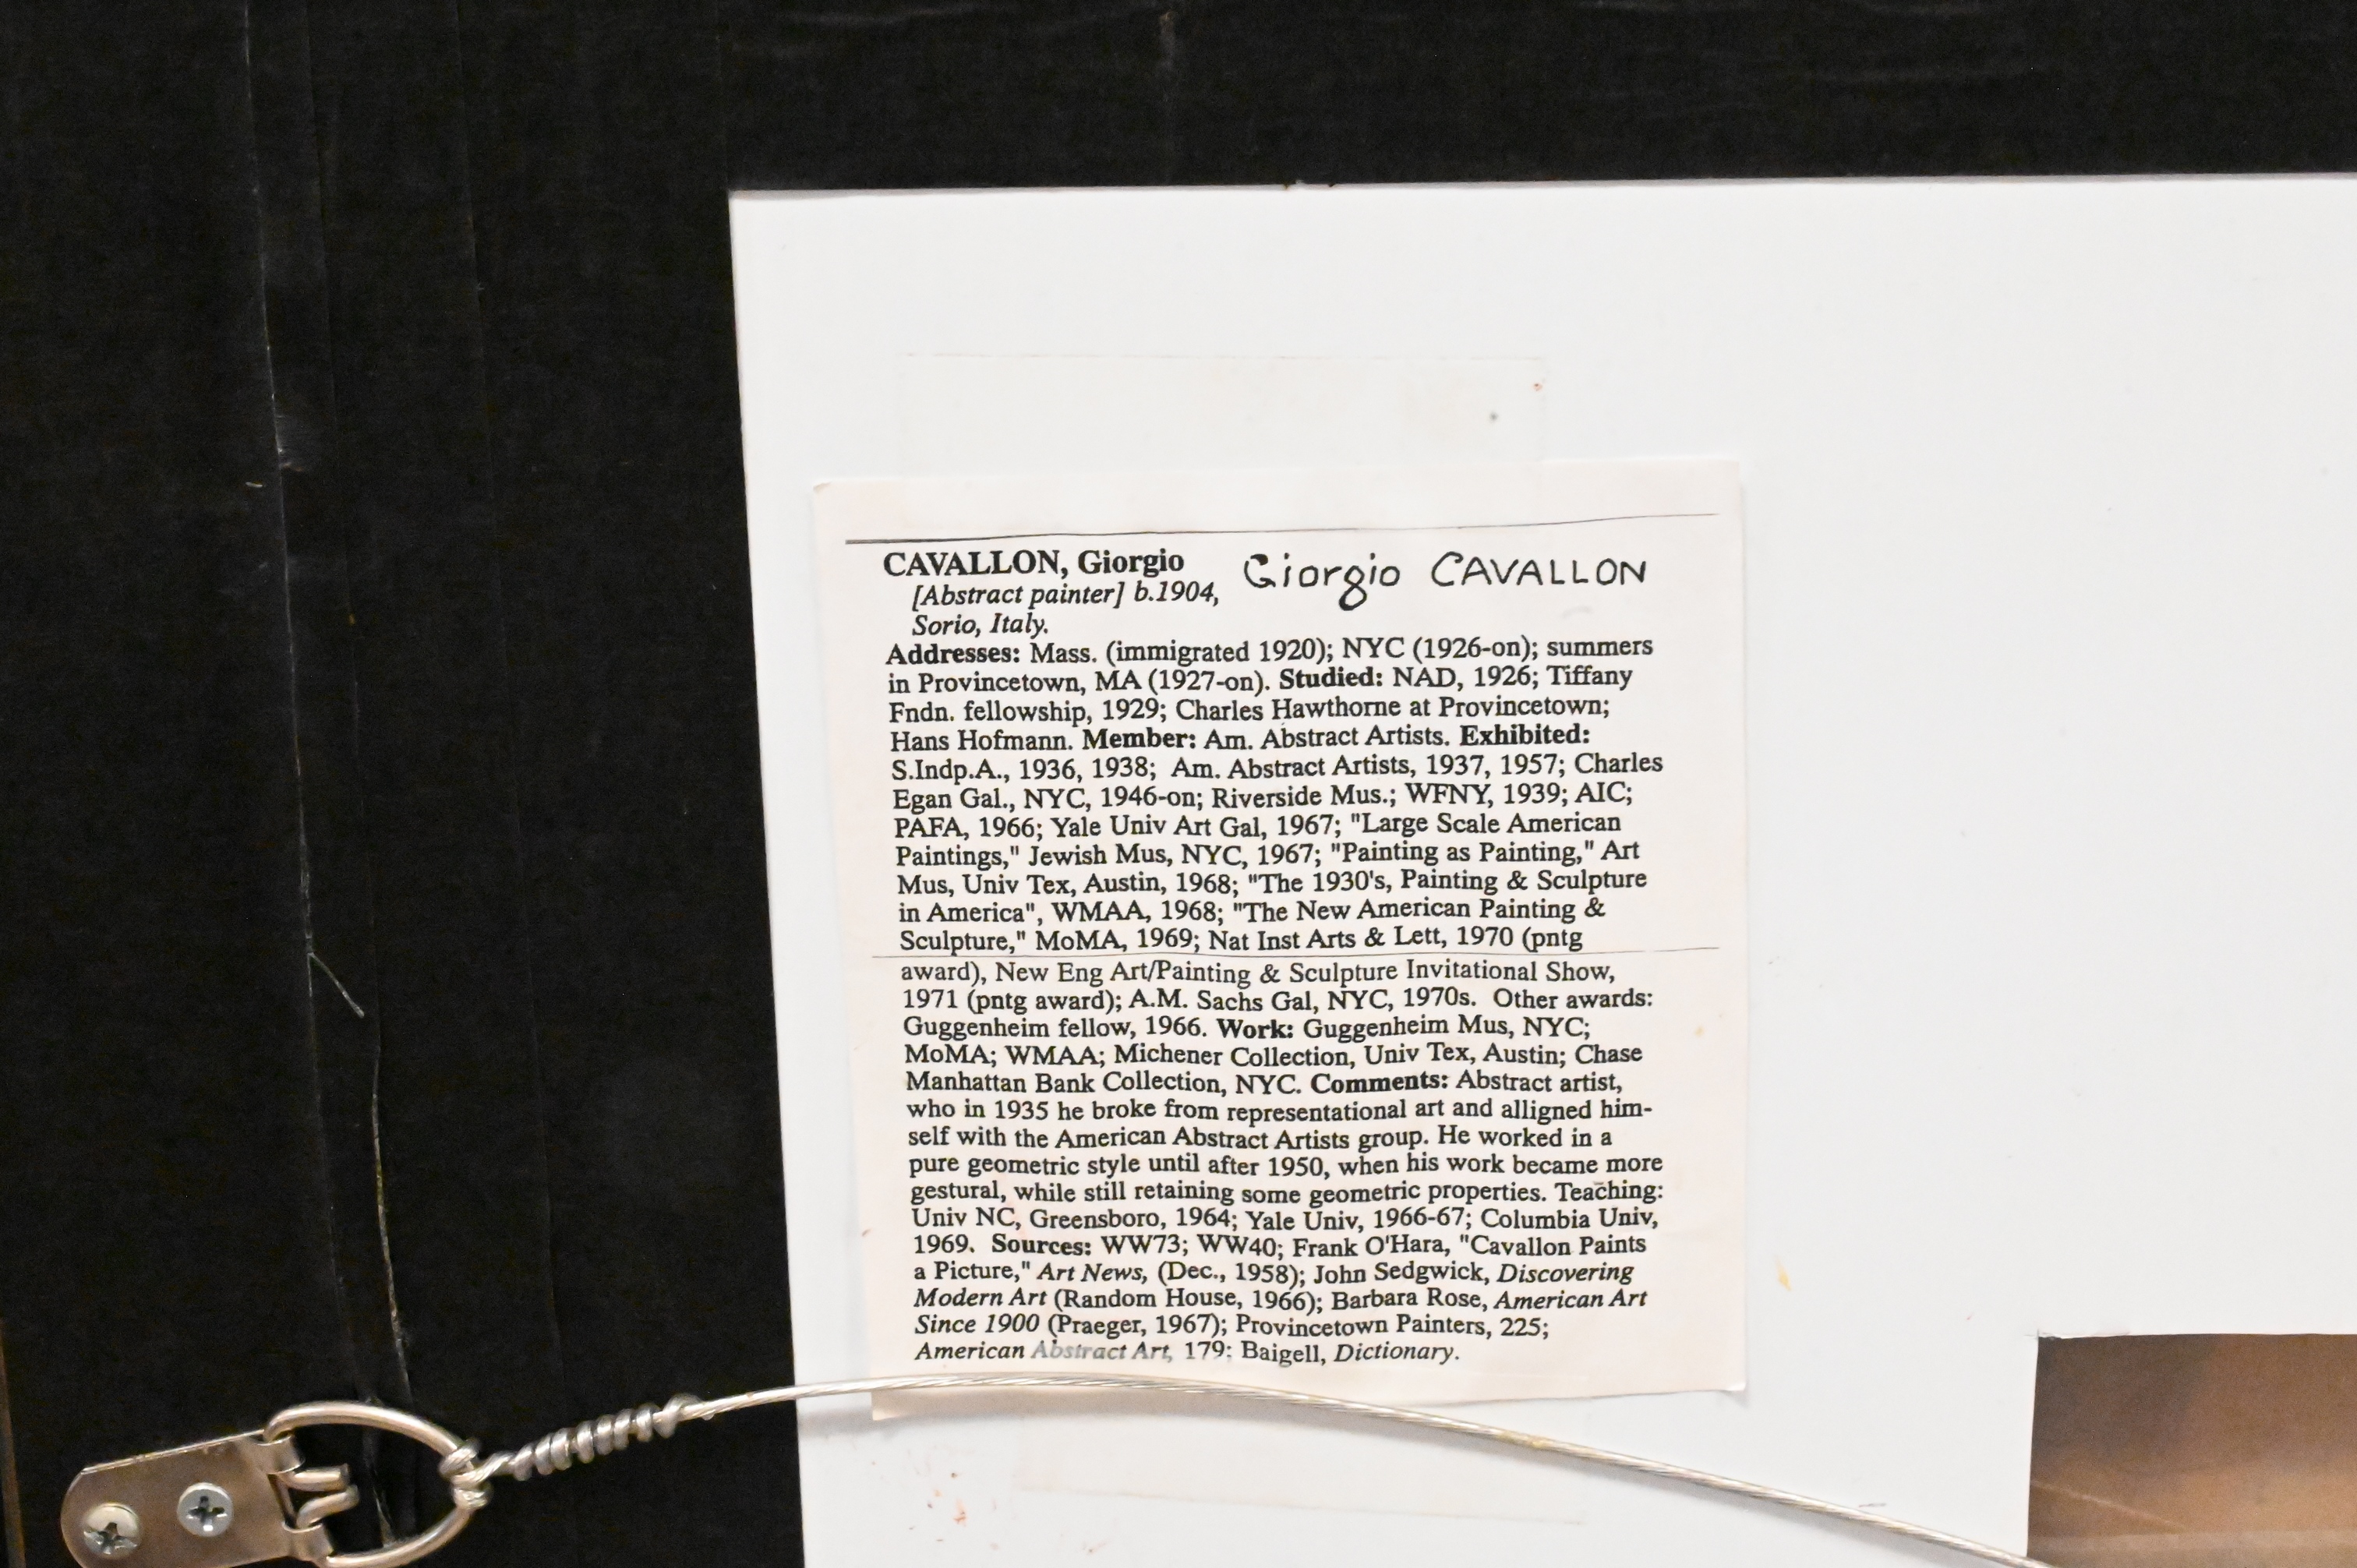 CAVALLON, Giorgio Giorgio CAVALLON
[Abstract painter] b.1904,
Sorio, Italy.
Addresses: Mass. (immigrated 1920); NYC (1926-on); summers
in Provincetown, MA (1927-on). Studied: NAD, 1926; Tiffany
Fndn. fellowship, 1929; Charles Hawthorne at Provincetown;
Hans Hofmann. Member: Am. Abstract Artists. Exhibited:
S.Indp.A., 1936, 1938; Am. Abstract Artists, 1937, 1957; Charles
Egan Gal., NYC, 1946-on; Riverside Mus.; WFNY, 1939; AIC;
PAFA, 1966; Yale Univ Art Gal, 1967; "Large Scale American
Paintings," Jewish Mus, NYC, 1967; "Painting as Painting," Art
Mus, Univ Tex, Austin, 1968; "The 1930's, Painting & Sculpture
in America", WMAA, 1968; "The New American Painting &
Sculpture," MoMA, 1969; Nat Inst Arts & Lett, 1970 (pntg
award), New Eng Art/Painting & Sculpture Invitational Show,
1971 (pntg award); A.M. Sachs Gal, NYC, 1970s. Other awards:
Guggenheim fellow, 1966. Work: Guggenheim Mus, NYC;
MoMA; WMAA; Michener Collection, Univ Tex, Austin; Chase
Manhattan Bank Collection, NYC. Comments: Abstract artist,
who in 1935 he broke from representational art and alligned him-
self with the American Abstract Artists group. He worked in a
pure geometric style until after 1950, when his work became more
gestural, while still retaining some geometric properties. Teaching:
Univ NC, Greensboro, 1964; Yale Univ, 1966-67; Columbia Univ,
1969. Sources: WW73; WW40; Frank O'Hara, "Cavallon Paints
a Picture," Art News, (Dec., 1958); John Sedgwick, Discovering
Modern Art (Random House, 1966); Barbara Rose, American Art
Since 1900 (Praeger, 1967); Provincetown Painters, 225;
American Abstract Art, 179: Baigell, Dictionary.